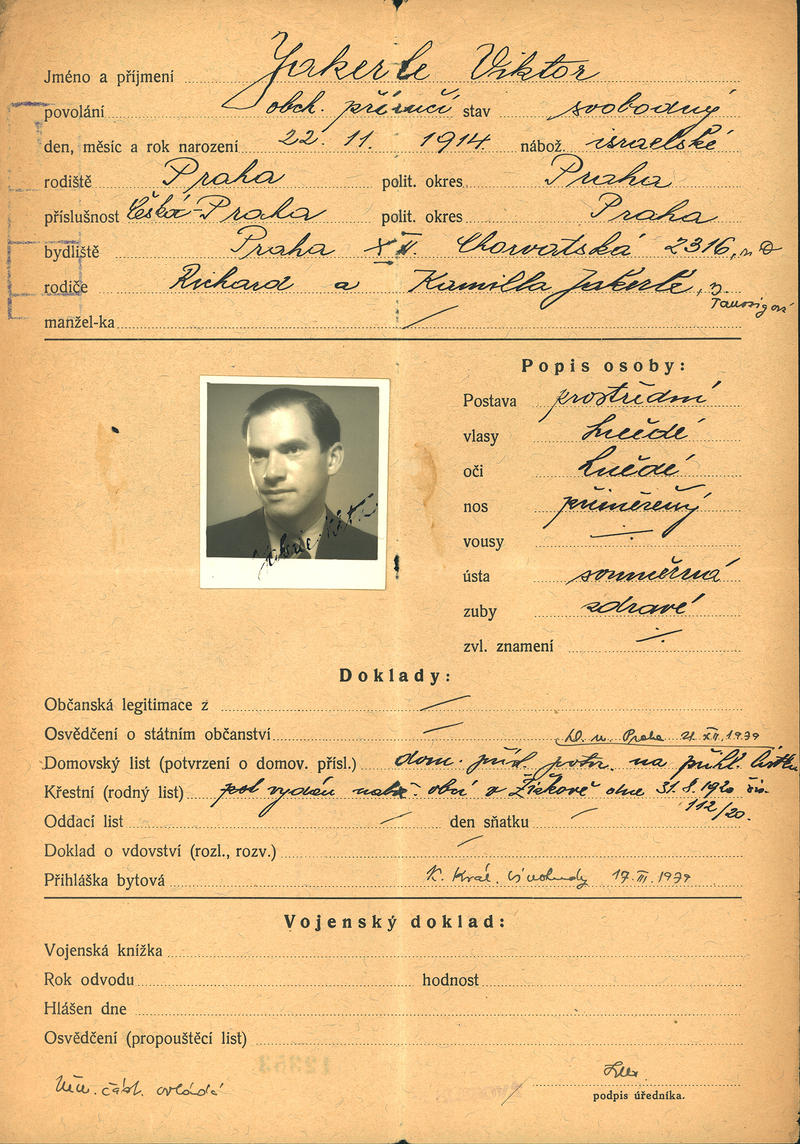 Jméno a příjmení Jakerle Viktor
povolání obch. příručí stav svobodný
den, měsíc a rok narození 22. 11. 1914 nábož. israelské
rodiště Praha polit. okres Praha
příslušnost Česká-Praha polit. okres Praha
bydliště Praha XII. Chorvatská 2316,
rodiče Richard a Kamilla Jakerle, r.
Taussigová
manžel-ka /
Popis osoby:
Postava prostřední
vlasy hnědé
oči hnědé
nos přiměřený
vousy
Jakerle Viktor
ústa souměrná
zuby zdravé
zvl. znamení
Doklady:
Občanská legitimace z
Osvědčení o státním občanství Praha XII. 1939
Domovský list (potvrzení o domov. přísl.) dom. přísl. potvr. na přihl. lístku
Křestní (rodný list) vydán nábož. obcí v Žižkově dne 31.8.1920 čís.
112/20.
Oddací list den sňatku
Doklad o vdovství (rozl., rozv.)
Přihláška bytová K. Král. Vinohrady 17.III.1939
Vojenský doklad:
Vojenská knížka
Rok odvodu hodnost
Hlášen dne
Osvědčení (propouštěcí list)
část. ovládá
podpis úředníka.